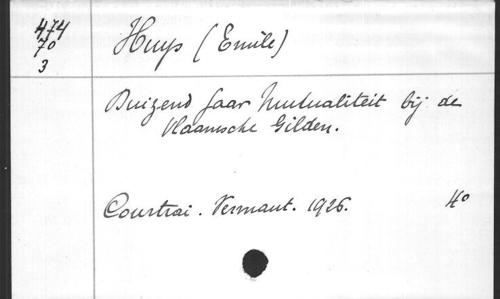 474
70
3
Huys (Emile)
Duizend Jaar Mutualiteit bij de
Vlaamsche Gilden.
Courtrai. Vermaut. 1926. 4o